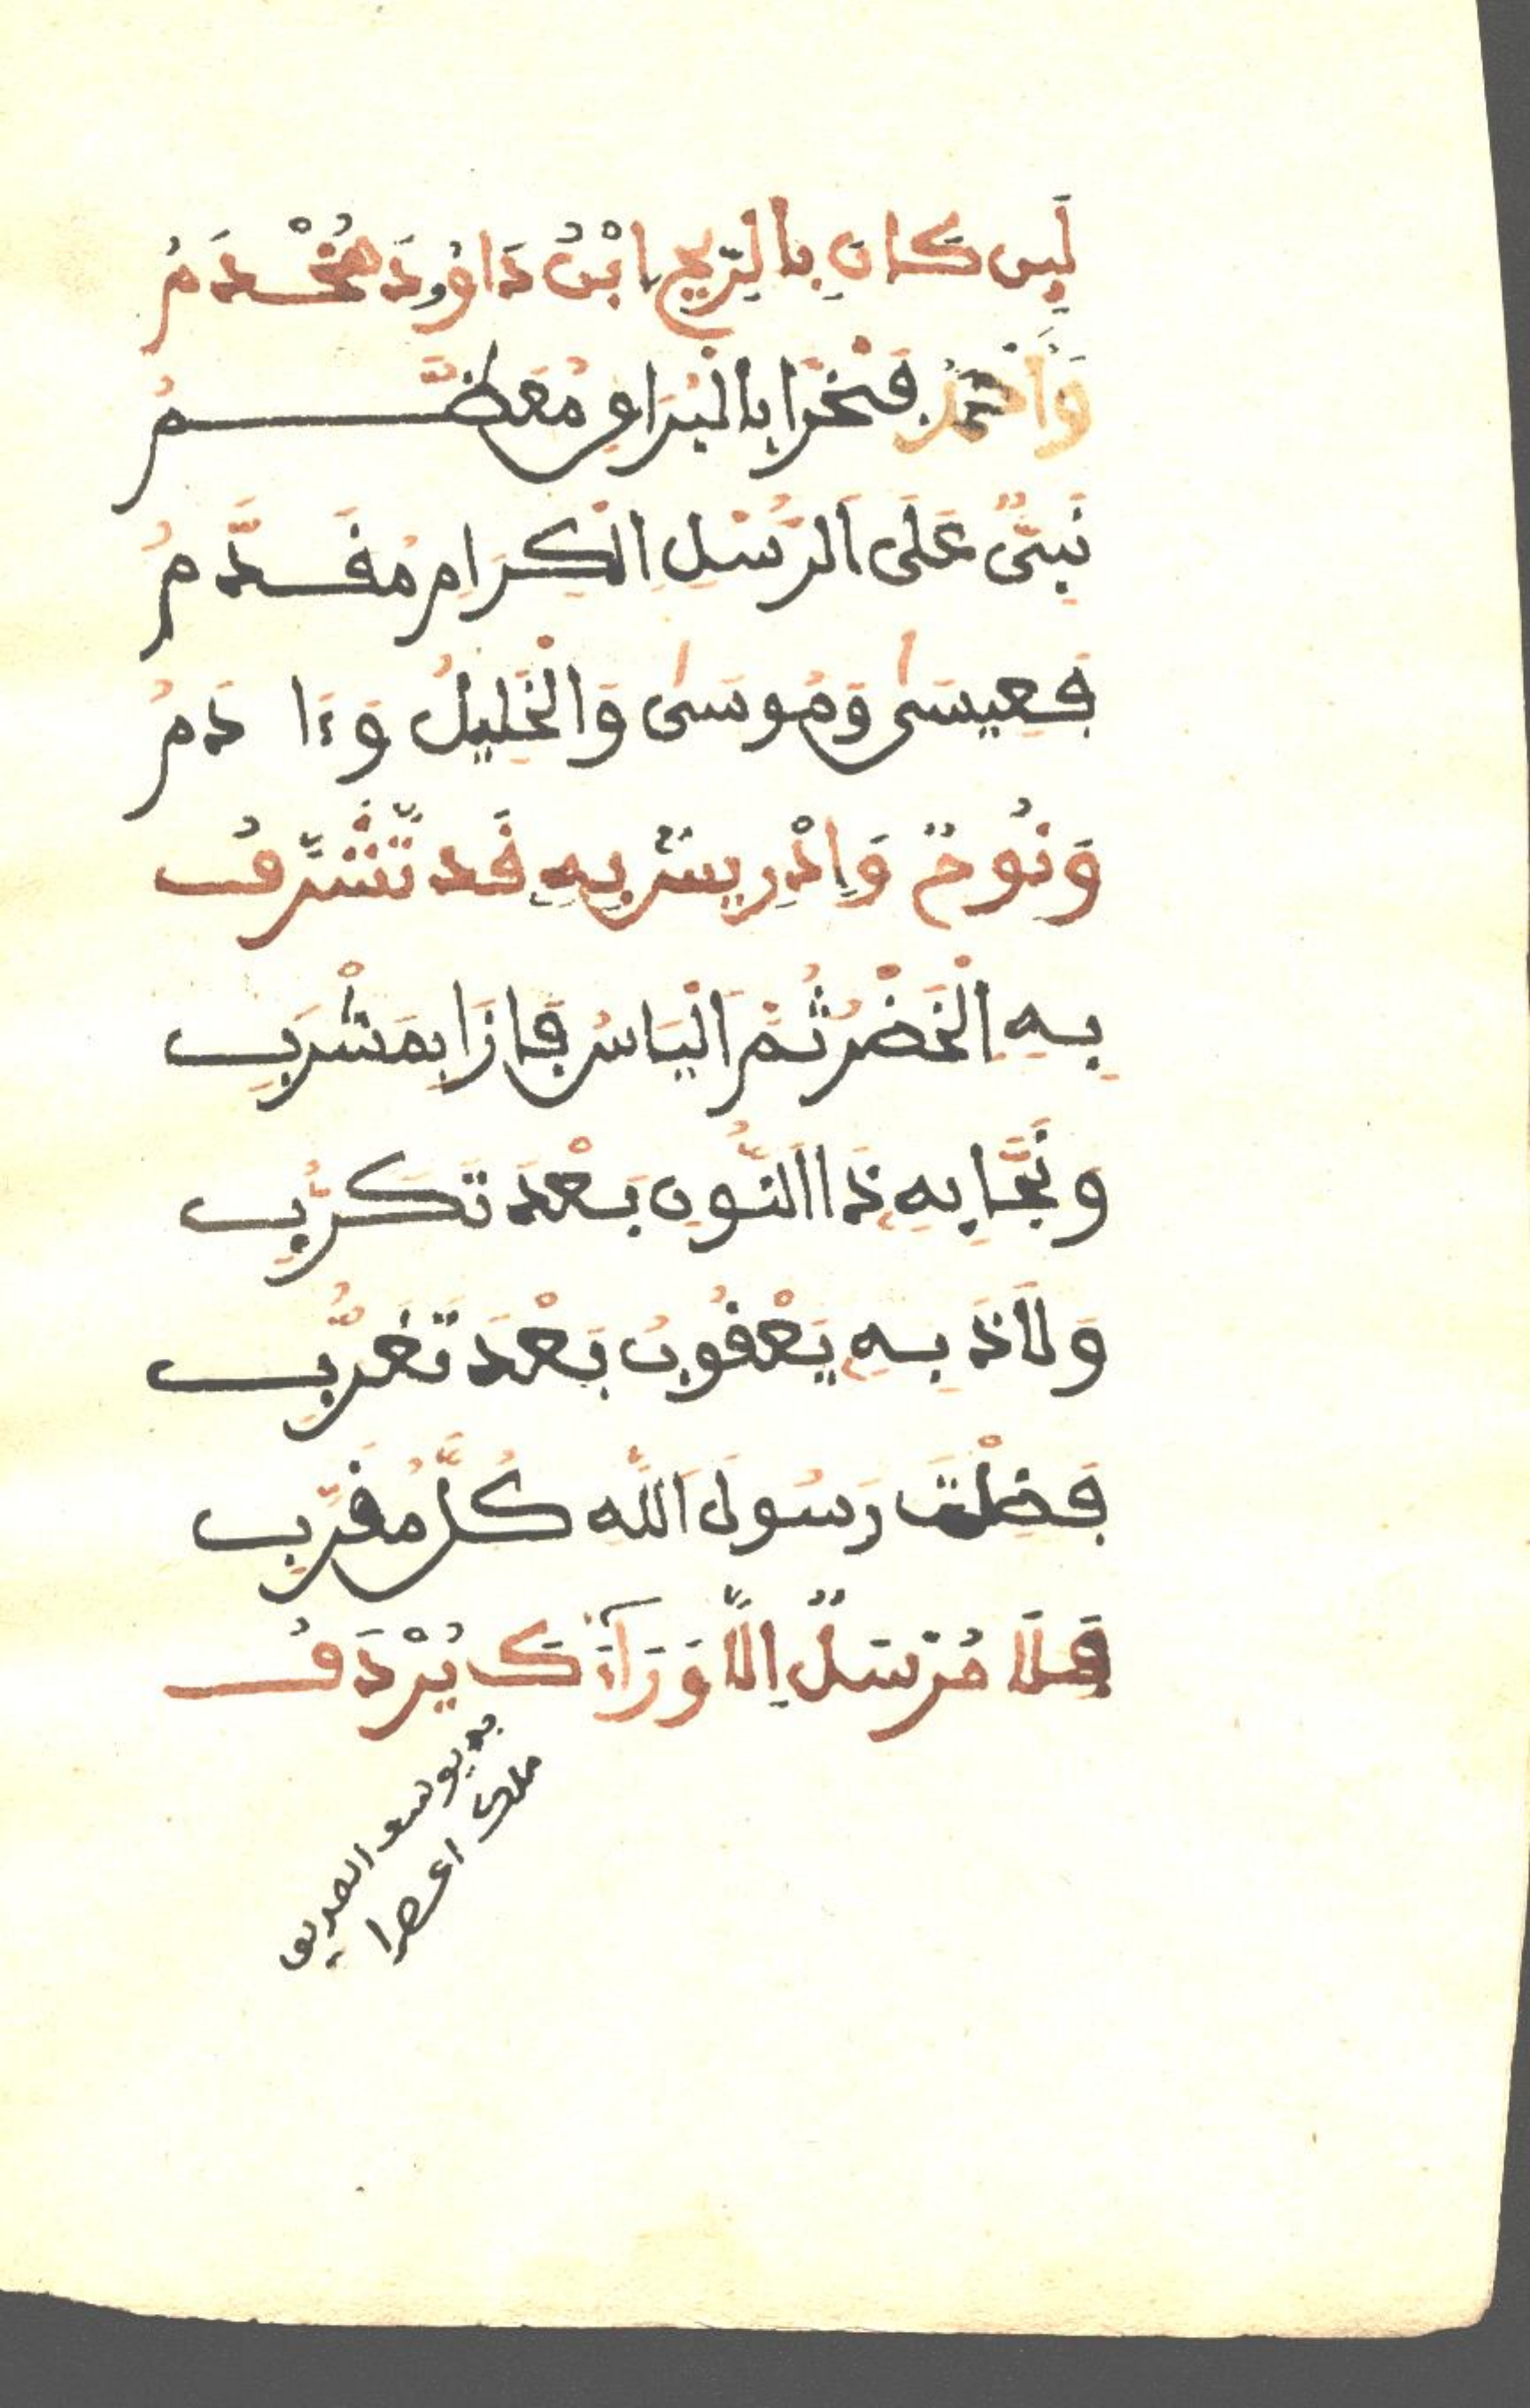 لَيِن كَانَ بِالرِّيحِ ابْنُ دَاوُودَ مُخْدَمُ
وَأَحْمَدُ فَخْرًا بِالْبُرَاقِ مُعَظَّمُ
نَبِيٌّ عَلَى الرُّسْلِ الْكِرَامِ مُقَدَّمُ
فَعِيسَى وَمُوسَى وَالْخَلِيلُ وَءَادَمُ
وَنُوحٌ وَإِدْرِيسٌ بِهِ قَد تَّشَرَّفُ
بِهِ الْخَضْرُ ثُمَّ الْيَاسُ فَازَا بِمَشْرَبِ
وَنَجَّا بِهِ ذَا النُّونِ بَعْدَ تَكَرُّبِ
وَلَاذَ بِهِ يَعْقُوبُ بَعْدَ تَغَرُّبِ
فَضَلْتَ رَسُولَ اللَّهِ كُلَّ مُقَرَّبِ
فَلَا مُرْسَلٌ إِلَّا وَرَآءَكَ يُرْدَفُ
به يوسف الصديق
ملك اعصرا